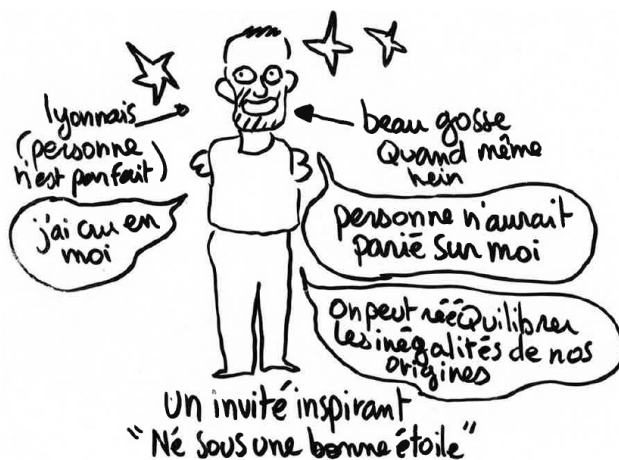 lyonnais
(personne
n'est parfait)
beau gosse
Quand même
hein
j'ai cru en
moi
personne n'aurait
parié sur moi
on peut rééQuilibrer
les inégalités de nos
origines
un invité inspirant
"Né sous une bonne étoile"